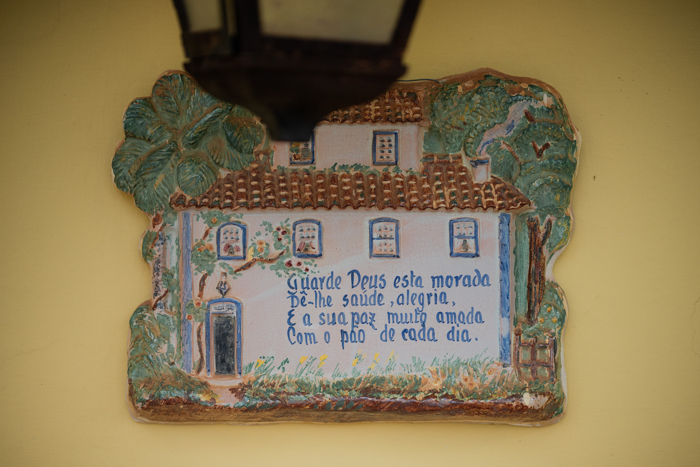 Guarde Deus esta morada
Dê-lhe saúde, alegria,
E a sua paz muito amada
Com o pão de cada dia.